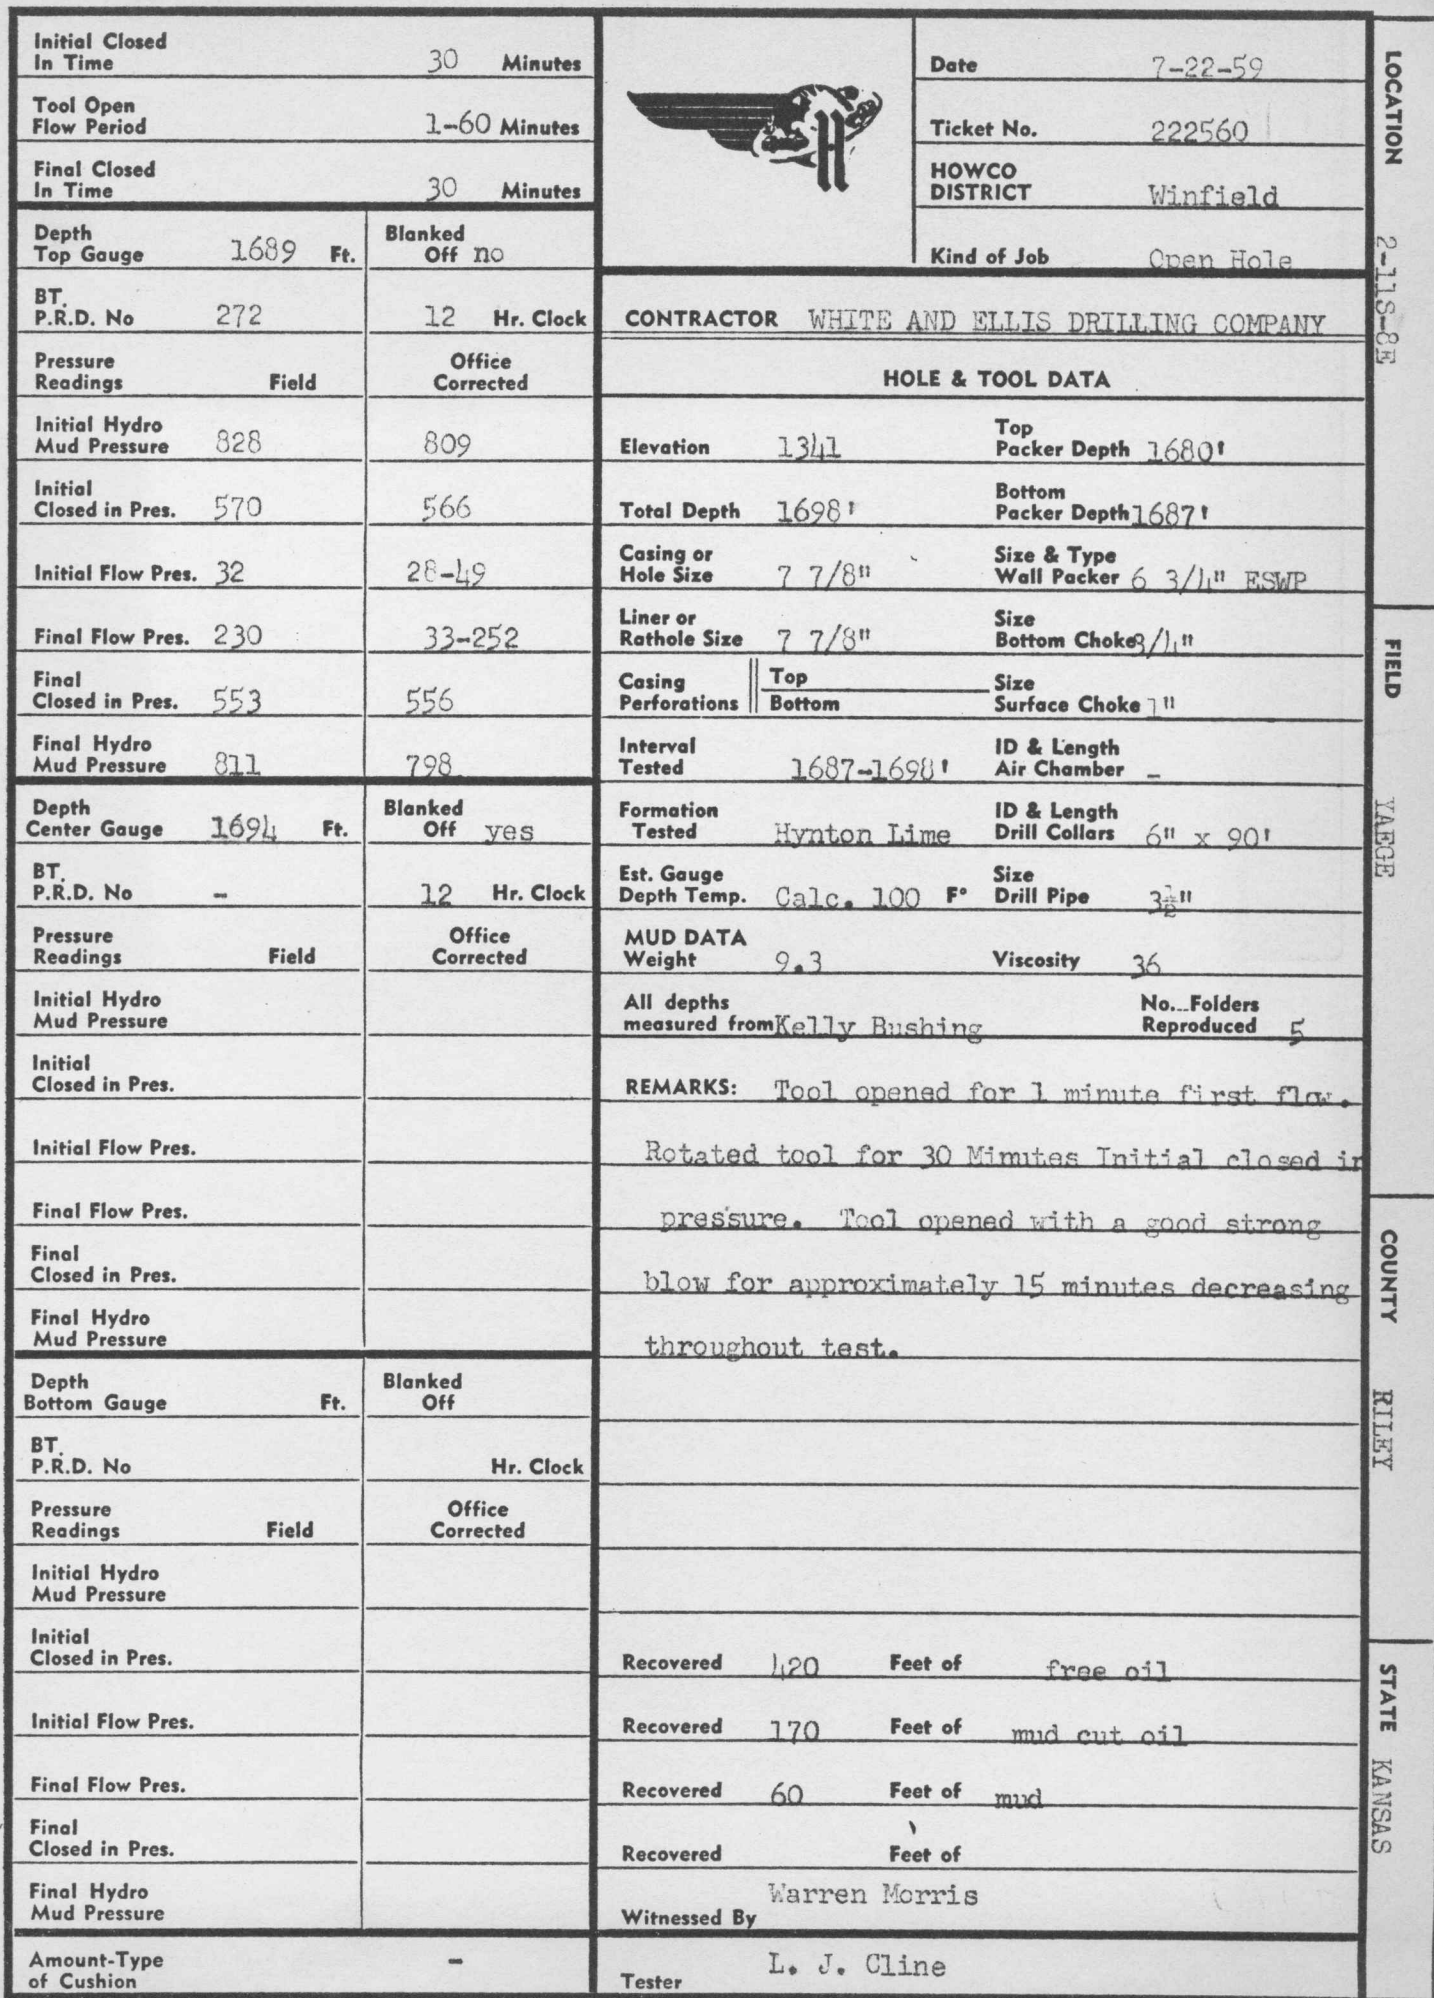 Initial Closed
In Time 30 Minutes
Tool Open
Flow Period 1-60 Minutes
Final Closed
In Time 30 Minutes
Depth
Top Gauge 1689 Ft. Blanked
Off no
BT.
P.R.D. No 272 12 Hr. Clock
Pressure
Readings Field Office
Corrected
Initial Hydro
Mud Pressure 828 809
Initial
Closed in Pres. 570 566
Initial Flow Pres. 32 28-49
Final Flow Pres. 230 33-252
Final
Closed in Pres. 553 556
Final Hydro
Mud Pressure 811 798
Depth
Center Gauge 1694 Ft. Blanked
Off yes
BT.
P.R.D. No - 12 Hr. Clock
Pressure
Readings Field Office
Corrected
Initial Hydro
Mud Pressure
Initial
Closed in Pres.
Initial Flow Pres.
Final Flow Pres.
Final
Closed in Pres.
Final Hydro
Mud Pressure
Depth
Bottom Gauge Ft. Blanked
Off
BT.
P.R.D. No Hr. Clock
Pressure
Readings Field Office
Corrected
Initial Hydro
Mud Pressure
Initial
Closed in Pres.
Initial Flow Pres.
Final Flow Pres.
Final
Closed in Pres.
Final Hydro
Mud Pressure
Amount-Type
of Cushion -
H
Date 7-22-59
Ticket No. 222560
HOWCO
DISTRICT Winfield
Kind of Job Open Hole
CONTRACTOR WHITE AND ELLIS DRILLING COMPANY
HOLE & TOOL DATA
Elevation 1341 Top
Packer Depth 1680'
Total Depth 1698' Bottom
Packer Depth 1687'
Casing or
Hole Size 7 7/8" Size & Type
Wall Packer 6 3/4" ESWP
Liner or
Rathole Size 7 7/8" Size
Bottom Choke 3/4"
Casing
Perforations Top
Bottom Size
Surface Choke 1"
Interval
Tested 1687-1698' ID & Length
Air Chamber -
Formation
Tested Hynton Lime ID & Length
Drill Collars 6" x 90'
Est. Gauge
Depth Temp. Calc. 100 F° Size
Drill Pipe 3½"
MUD DATA
Weight 9.3 Viscosity 36
All depths
measured from Kelly Bushing No...Folders
Reproduced 5
REMARKS: Tool opened for 1 minute first flow.
Rotated tool for 30 Minutes Initial closed in
pressure. Tool opened with a good strong
blow for approximately 15 minutes decreasing
throughout test.
Recovered 420 Feet of free oil
Recovered 170 Feet of mud cut oil
Recovered 60 Feet of mud
Recovered Feet of
Witnessed By Warren Morris
Tester L. J. Cline
LOCATION 2-11S-8E
FIELD YAEGE
COUNTY RILEY
STATE KANSAS